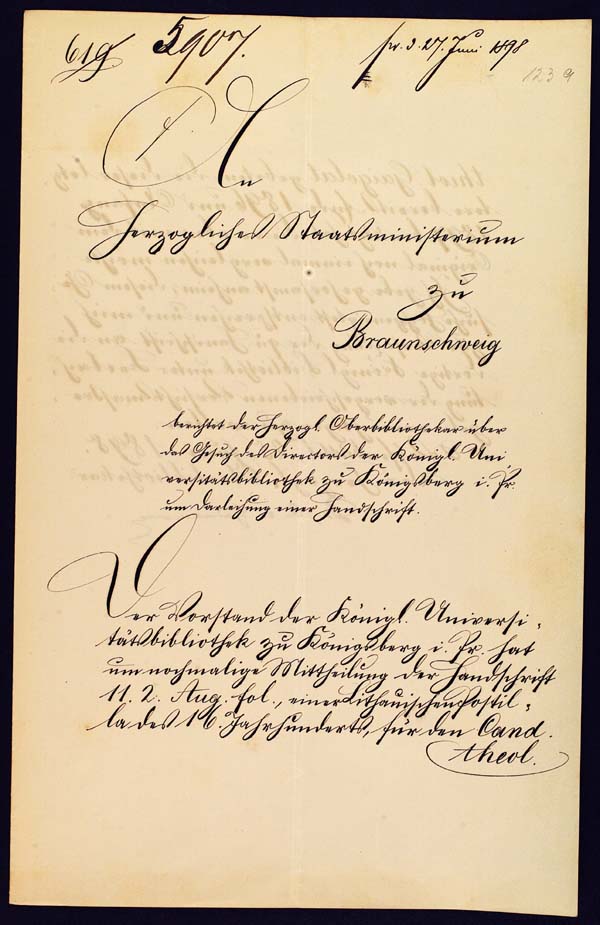 619. 5907. pr. d. 27. Juni 1898
123 a
An
Herzogliches Staatsministerium
zu
Braunschweig
berichtet der Herzogl. Oberbibliothekar über
das Gesuch des Directors der Königl. Uni
versitätsbibliothek zu Königsberg i. Pr.
um Darleihung einer Handschrift.
Der Vorstand der Königl. Universi-
tätsbibliothek zu Königsberg i. Pr. hat
um nochmalige Mittheilung der Handschrift
11. 2. Aug. fol., einer Lithauischen Postil-
la des 16. Jahrhunderts, für den Cand.
theol.